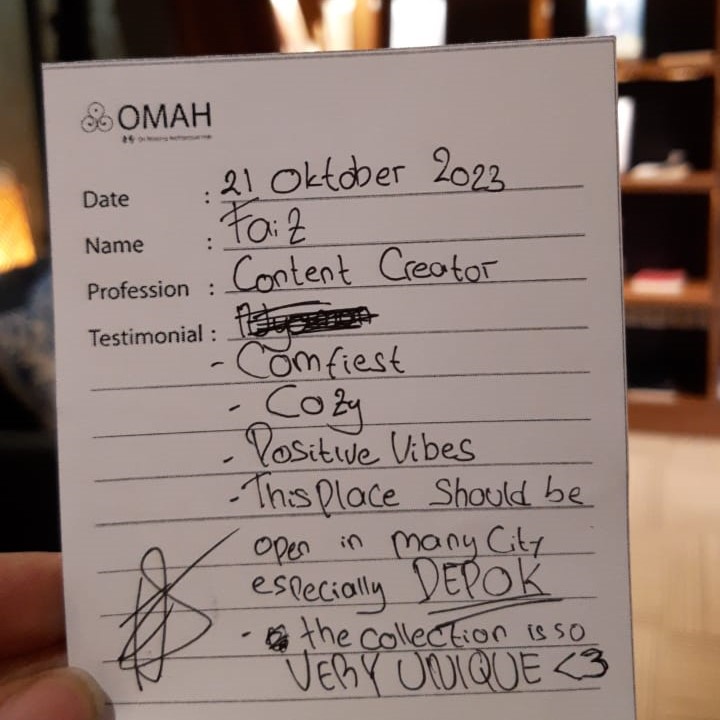 OMAH
Date : 21 Oktober 2023
Name : Faiz
Profession : Content Creator
Testimonial :
- Comfiest
- Cozy
- Positive Vibes
- This Place Should be
open in many City
especially DEPOK
- the collection is so
VERY UNIQUE <3